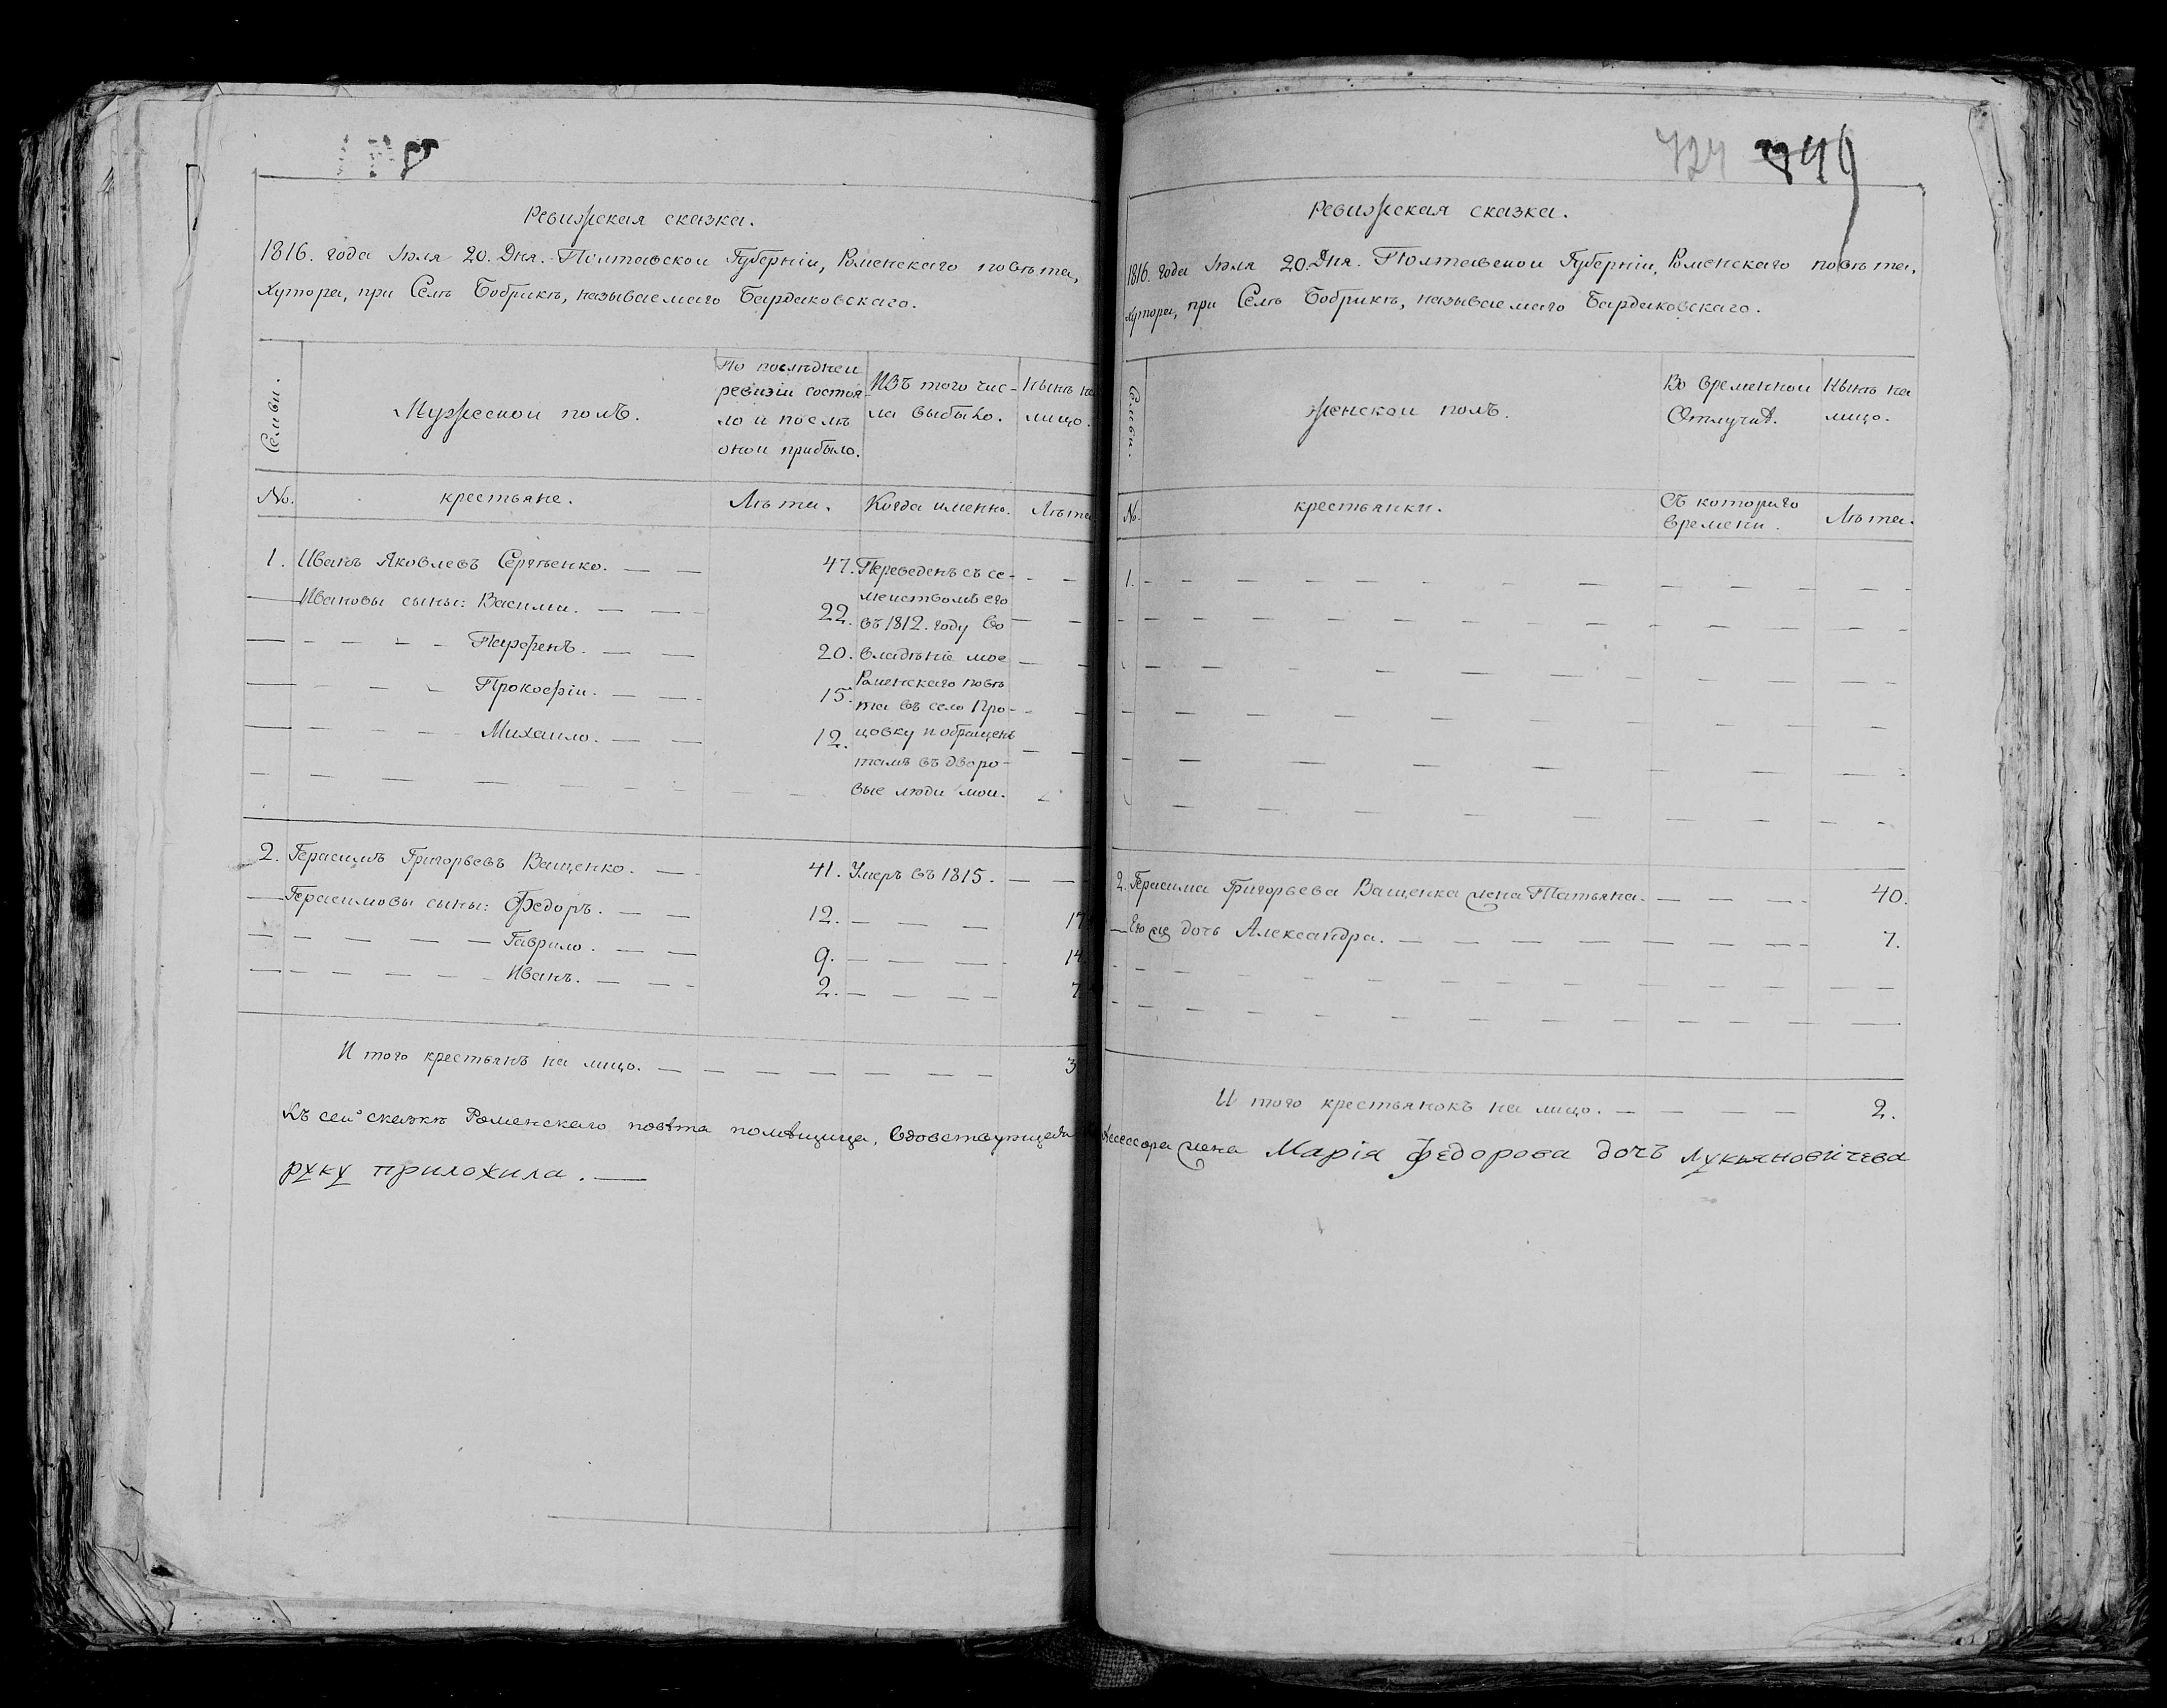 Ревижская сказка.
1816. года Іюля 20. Дня. Полтавской Губерніи, Роменскаго повѣта,
хутора, при Селѣ Бобрикѣ, называемаго Бардаковскаго.
Семьи.
Мужеской полъ.
По послѣдней
ревизіи состоя-
ло и послѣ
оной прибыло.
Изъ того чис-
ла выбыло.
Нынѣ на
лицо.
No. крестьяне. Лѣта. Когда именно. Лѣта
1. Иванъ Яковлевъ Сергѣенко. 47. Переведенъ съ се-
Ивановы сыны: Василий. 22. мействомъ его
въ 1812. году во
Парфенъ. 20. владѣніе мое
Прокофій. 15. Роменскаго повѣ
та въ село Про-
Михайло. 12. цовку и обращенъ
тамъ въ дворо-
вые люди мои.
2. Герасимъ Григорьевъ Ващенко. 41. Умеръ въ 1815.
Герасимовы сыны: Федоръ. 12. 17
Гаврило. 9. 14
Иванъ. 2. 7
И того крестьянъ на лицо. 3
Къ сей сказкѣ Роменскаго повѣта помѣщица, вдовствующая
руку приложила.
724 749
Ревижская сказка.
1816. года Іюля 20. Дня. Полтавской Губерніи, Роменскаго повѣта,
хутора, при Селѣ Бобрикѣ, называемаго Бардаковскаго.
Семьи.
Женской полъ.
Во временной
Отлучкѣ.
Нынѣ на
лицо.
No. крестьянки. Съ котораго
времени. Лѣта.
1.
2. Герасима Григорьева Ващенка жена Татьяна. 40.
Ею же дочь Александра. 7.
И того крестьянокъ на лицо. 2.
Асессора жена Марія Федорова дочъ Лукьяновичева